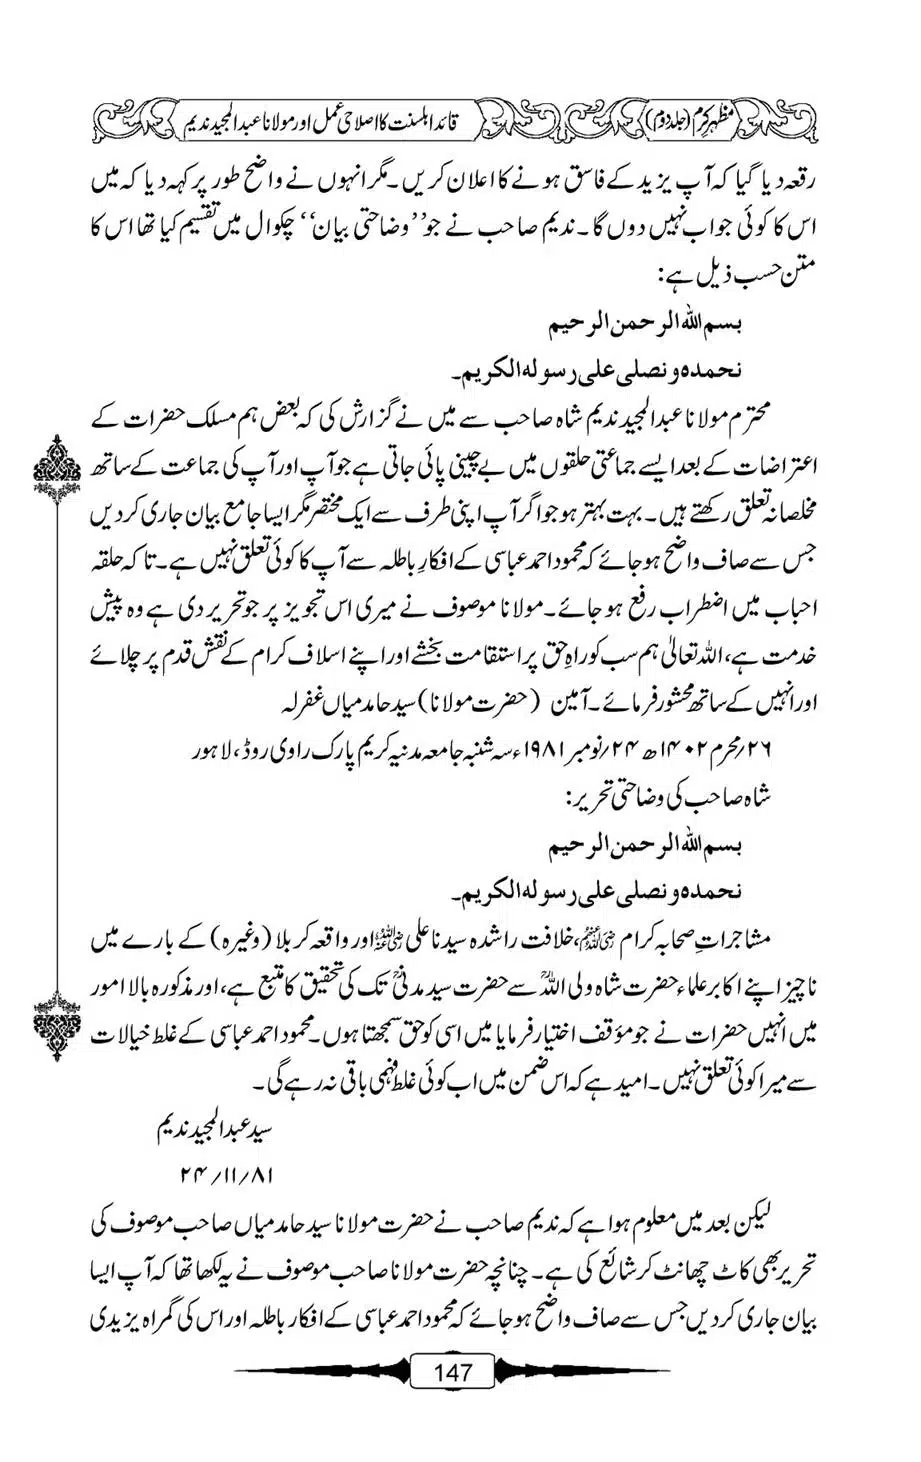 مظہرِ کرم (جلد دوم)
قائد اہلسنت کا اصلاحی عمل اور مولانا عبدالمجید ندیم
رقعہ دیا گیا کہ آپ یزید کے فاسق ہونے کا اعلان کریں۔ مگر انہوں نے واضح طور پر کہہ دیا کہ میں
اس کا کوئی جواب نہیں دوں گا۔ ندیم صاحب نے جو ’’وضاحتی بیان‘‘ چکوال میں تقسیم کیا تھا اس کا
متن حسب ذیل ہے:
بسم اللہ الرحمن الرحیم
نحمدہ و نصلی علی رسولہ الکریم۔
محترم مولانا عبدالمجید ندیم شاہ صاحب سے میں نے گزارش کی کہ بعض ہم مسلک حضرات کے
اعتراضات کے بعد ایسے جماعتی حلقوں میں بے چینی پائی جاتی ہے جو آپ اور آپ کی جماعت کے ساتھ
مخلصانہ تعلق رکھتے ہیں۔ بہت بہتر ہو جو اگر آپ اپنی طرف سے ایک مختصر مگر ایسا جامع بیان جاری کردیں
جس سے صاف واضح ہو جائے کہ محمود احمد عباسی کے افکارِ باطلہ سے آپ کا کوئی تعلق نہیں ہے۔ تاکہ حلقہ
احباب میں اضطراب رفع ہو جائے۔ مولانا موصوف نے میری اس تجویز پر جو تحریر دی ہے وہ پیش
خدمت ہے، اللہ تعالیٰ ہم سب کو راہِ حق پر استقامت بخشے اور اپنے اسلاف کرام کے نقش قدم پر چلائے
اور انہیں کے ساتھ محشور فرمائے۔ آمین (حضرت مولانا) سید حامد میاں غفرلہ
۲۶/محرم ۱۴۰۲ھ ۲۴/نومبر ۱۹۸۱ء سہ شنبہ جامعہ مدنیہ کریم پارک راوی روڈ، لاہور
شاہ صاحب کی وضاحتی تحریر:
بسم اللہ الرحمن الرحیم
نحمدہ و نصلی علی رسولہ الکریم۔
مشاجراتِ صحابہ کرام رضی اللہ عنہم، خلافت راشدہ سیدنا علی رضی اللہ عنہ اور واقعہ کربلا (وغیرہ) کے بارے میں
ناچیز اپنے اکابر علماء حضرت شاہ ولی اللہؒ سے حضرت سید مدنیؒ تک کی تحقیق کا متبع ہے، اور مذکورہ بالا امور
میں انہیں حضرات نے جو مؤقف اختیار فرمایا میں اسی کو حق سمجھتا ہوں۔ محمود احمد عباسی کے غلط خیالات
سے میرا کوئی تعلق نہیں۔ امید ہے کہ اس ضمن میں اب کوئی غلط فہمی باقی نہ رہے گی۔
سید عبدالمجید ندیم
۲۴/۱۱/۸۱
لیکن بعد میں معلوم ہوا ہے کہ ندیم صاحب نے حضرت مولانا سید حامد میاں صاحب موصوف کی
تحریر بھی کاٹ چھانٹ کر شائع کی ہے۔ چنانچہ حضرت مولانا صاحب موصوف نے یہ لکھا تھا کہ آپ ایسا
بیان جاری کر دیں جس سے صاف واضح ہو جائے کہ محمود احمد عباسی کے افکار باطلہ اور اس کی گمراہ یزیدی
147